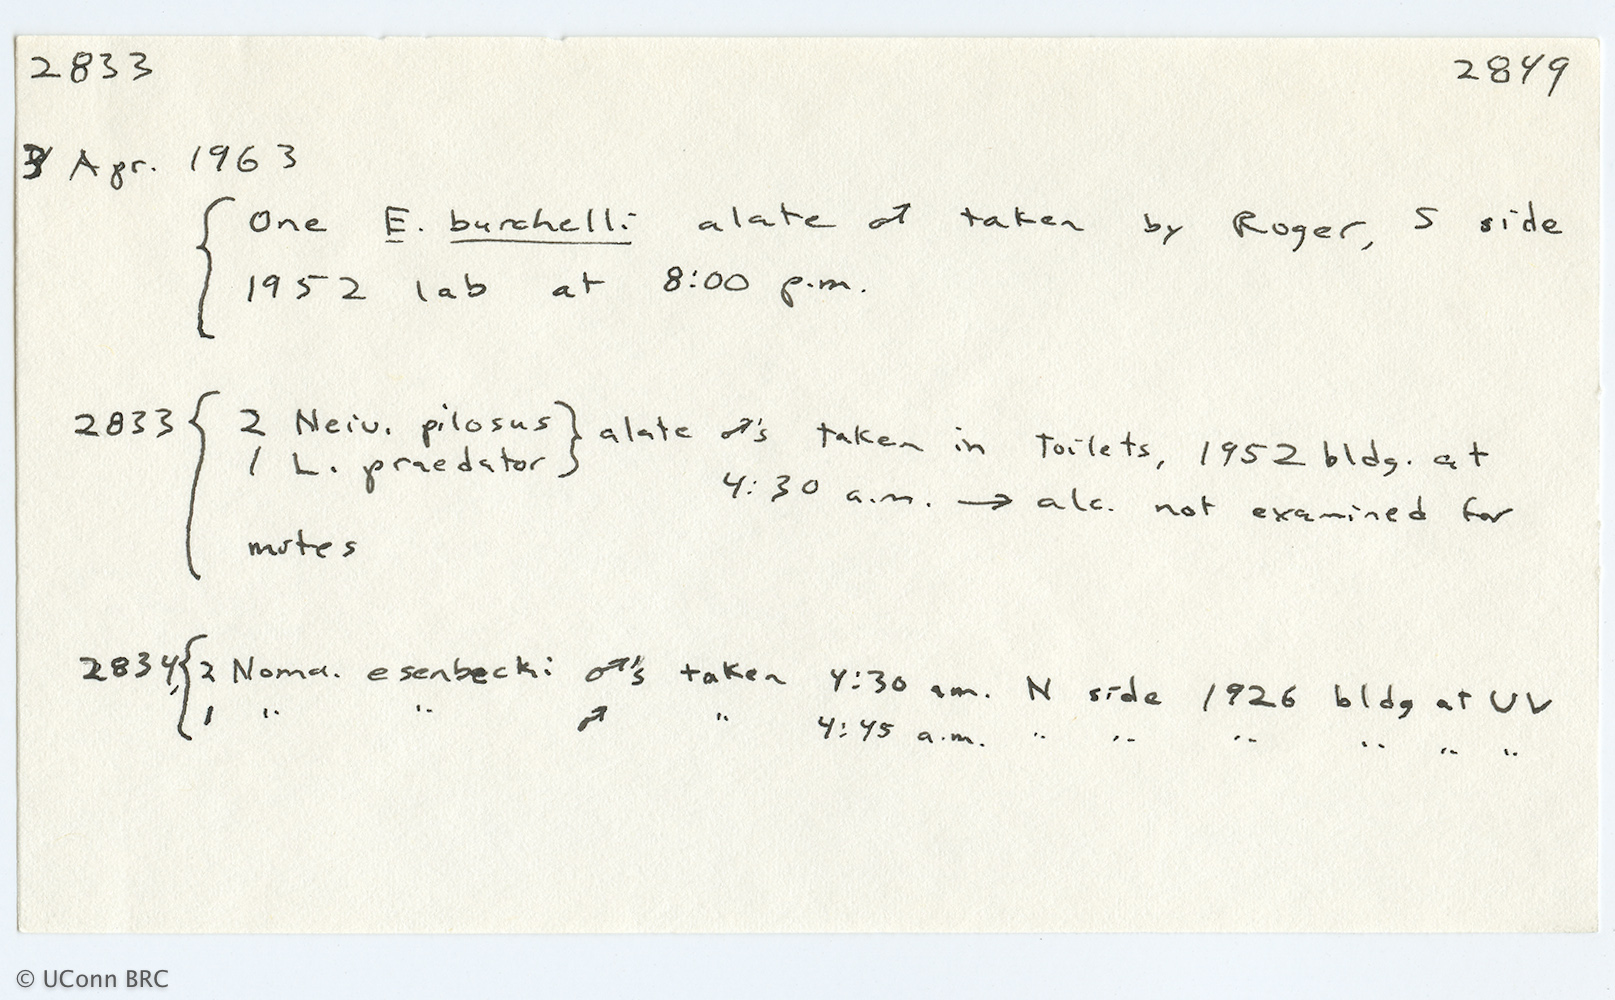 2833 2849
3 Apr. 1963
One E. burchelli alate ♂ taken by Roger, S side
1952 lab at 8:00 p.m.
2833 { 2 Neiv. pilosus } alate ♂'s taken in toilets, 1952 bldg. at
1 L. praedator } 4:30 a.m. → alc. not examined for
mites
2834 { 2 Noma. esenbecki ♂'s taken 4:30 am. N side 1926 bldg at UV
1 " " ♂ " 4:45 a.m. " " " " " "
© UConn BRC